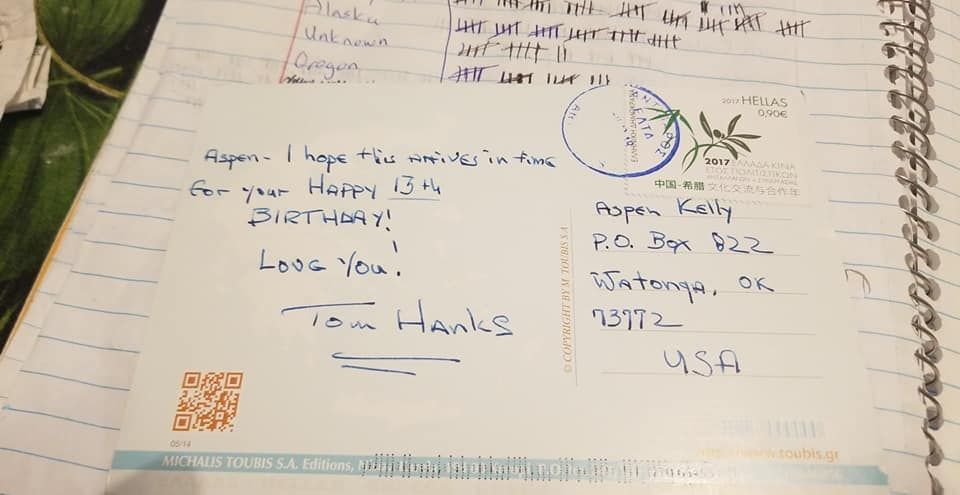 Alaska
Unknown
Oregon
2017 HELLAS
0,90€
2017 ΕΛΛΑΔΑ-ΚΙΝΑ
中国-希腊 文化交流与合作年
Aspen - I hope this arrives in time
for your HAPPY 13th
BIRTHDAY!
LOVE YOU!
TOM HANKS
© COPYRIGHT BY M. TOUBIS S.A.
Aspen Kelly
P.O. Box 822
Watonga, OK
73772
USA
05/14
MICHALIS TOUBIS S.A. Editions,
http://www.toubis.gr